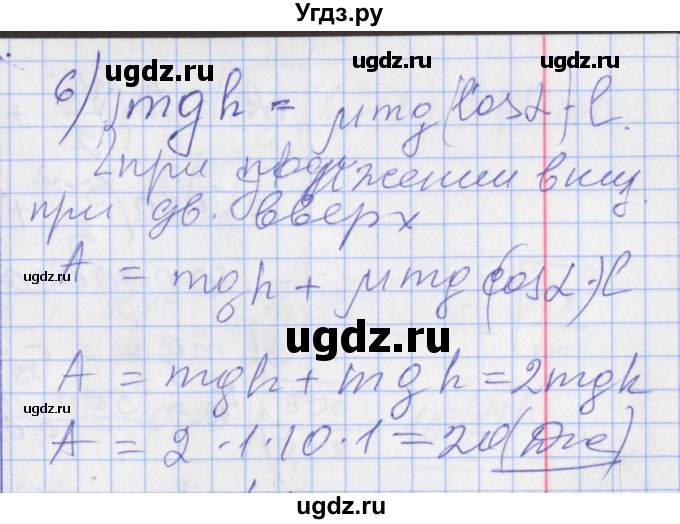 Угдз.ру
ugdz.ru ugdz.ru
6) mgh = μmg(cosα)·l.
при движении вниз.
при дв. вверх
ugdz.ru ugdz.ru
A = mgh + μmg(cosα)·l
ugdz.ru
A = mgh + mgh = 2mgh
ugdz.ru ugdz.ru
A = 2·1·10·1 = 20(Дж)
ugdz.ru